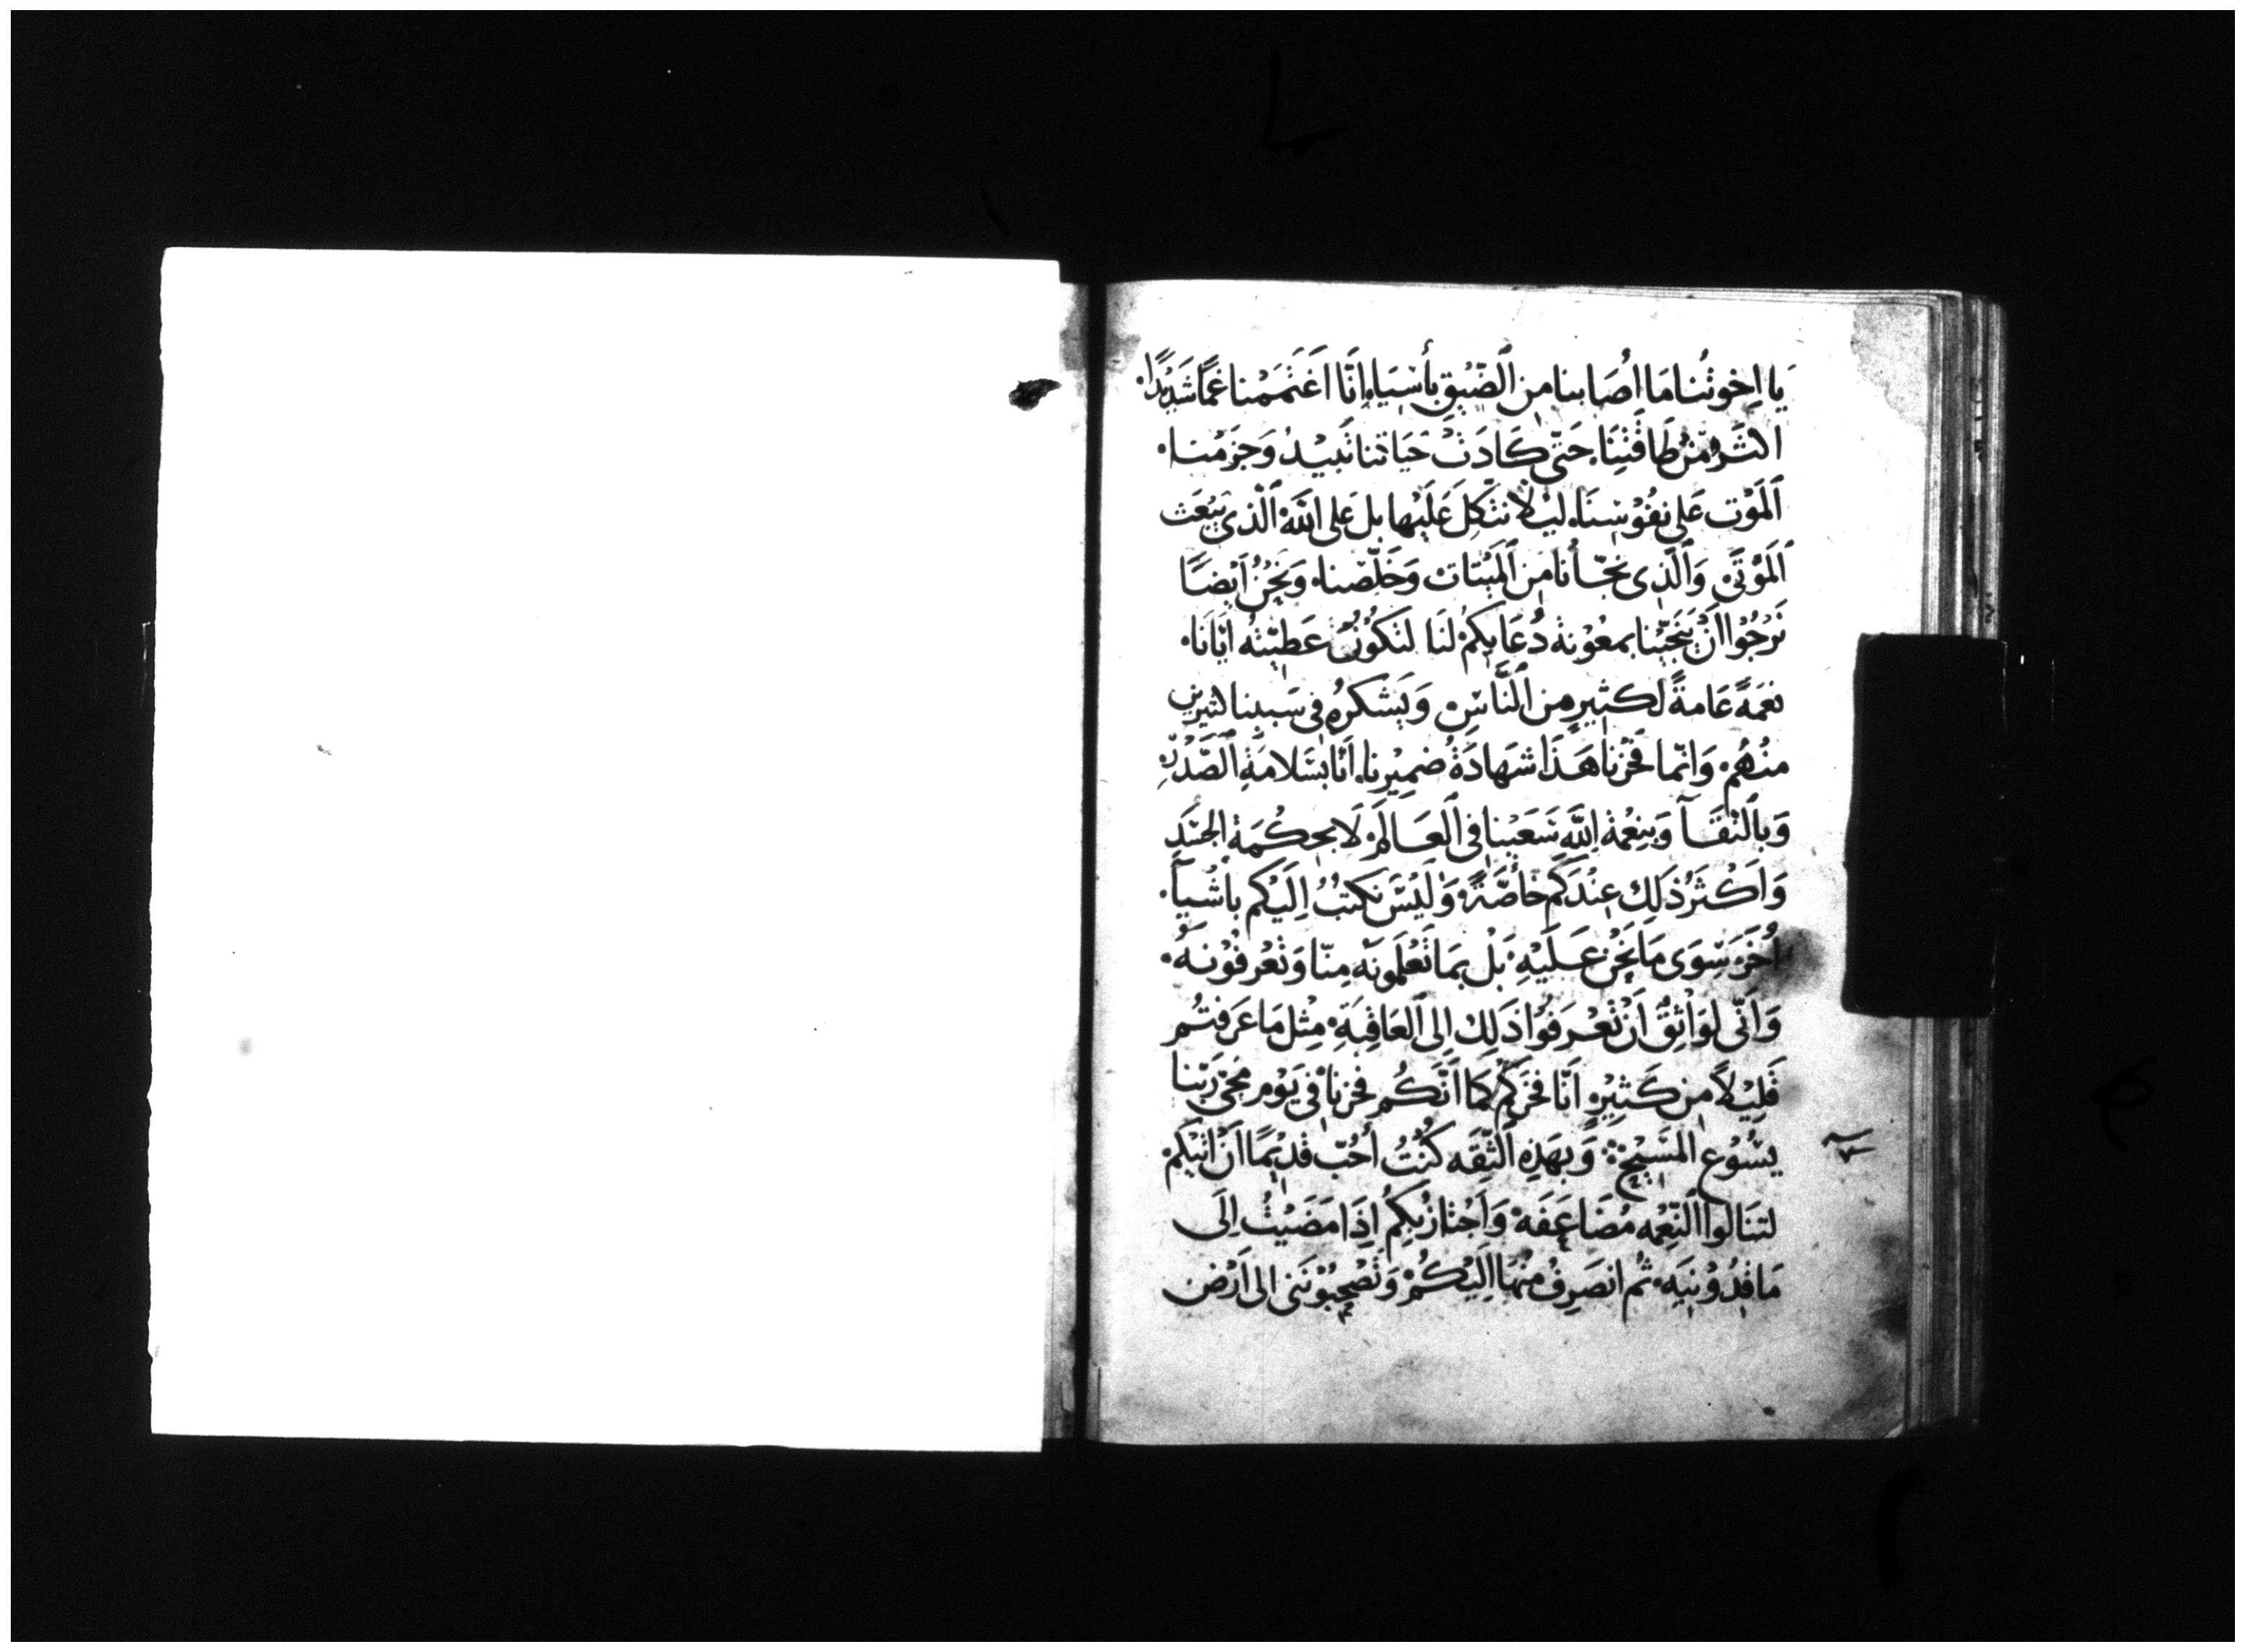 يا اِخوتُنا مَا اَصَابنا من اَلضّيْق بأسْيَاءِ اِنَّا اَغتَمَمْنا غمًّا شَديْدًا.
اكثَر مِنْ طَاقَتِنَا. حَتّى كَادَتْ حَيَاتنا تَبيْدُ وَجَزمْنا.
اَلمَوْت عَلى نفُوْسنَا. ليْلا نتّكِل عَلَيْها بل عَلى اللّهْ الّذي يَبْعَث
اَلمَوْتَى وَاَلّذي نجّأنا من اَلمَيْتَات وَخَلّصْنا. وَنَحْنُ اَيْضًا
نَرْجُوْا اَنْ يُنَجّيْنا بمعُوْنة دُعَايكمْ لنَا لتكوْنْ عَطيّتهُ ايّانَا.
نعمَةً عَامةً لكثيرٍ من اَلنّاسِ وَيَشكرهُ في سَببنا كثيرين
منْهُمْ. وَانّما فَخْرُنا هَذَا شهَادَةُ ضمِيْرنا. اَنّا بسَلامَةِ اَلصّدْر
وَباَلنّقَآ وَبنِعْمة اللَّهِ سَعَيْنا في اَلعَالَمْ لَا بحكْمَةْ الجسَدِ
وَاَكْثَرُ ذَلِك عِنْدَكم خاصّةً. وَلَيْسَ نكتبُ اِلَيْكم باشْيآ.
اُخَرَ سِوَى مَا نَحْن عَلَيْهِ. بَلْ بمَا تَعْلَمونَه مِنّا وَتَعْرفوْنه.
وَاَنّى لوَاثِقٌ اَنْ تَعْرفوُا ذَلِك اِلى اَلعَاقِبَةِ. مِثْل مَا عَرَفتُم
قَلِيْلاً من كَثِيْرٍ اَنّا فخرَكم كمَا اَنّكُم فخرنا في يَوْم مجيْ رَبّنا
يسُوْع المَسِيْح ۞ وَبهَذِه اَلثّقَه كنْتُ أحُبّ قديْمًا اَنْ اتيَكمْ
لتنَالوا اَلنّعْمه مُضَاعَفَهْ وَاَجْتازُ بكمُ اِذَا مَضَيْتُ اِلَى
مَاقدُوْنيَه. ثم انصَرِفُ منْهَا اِلَيْكُمْ وَتَصْحَبُوْننى الى اَرْض